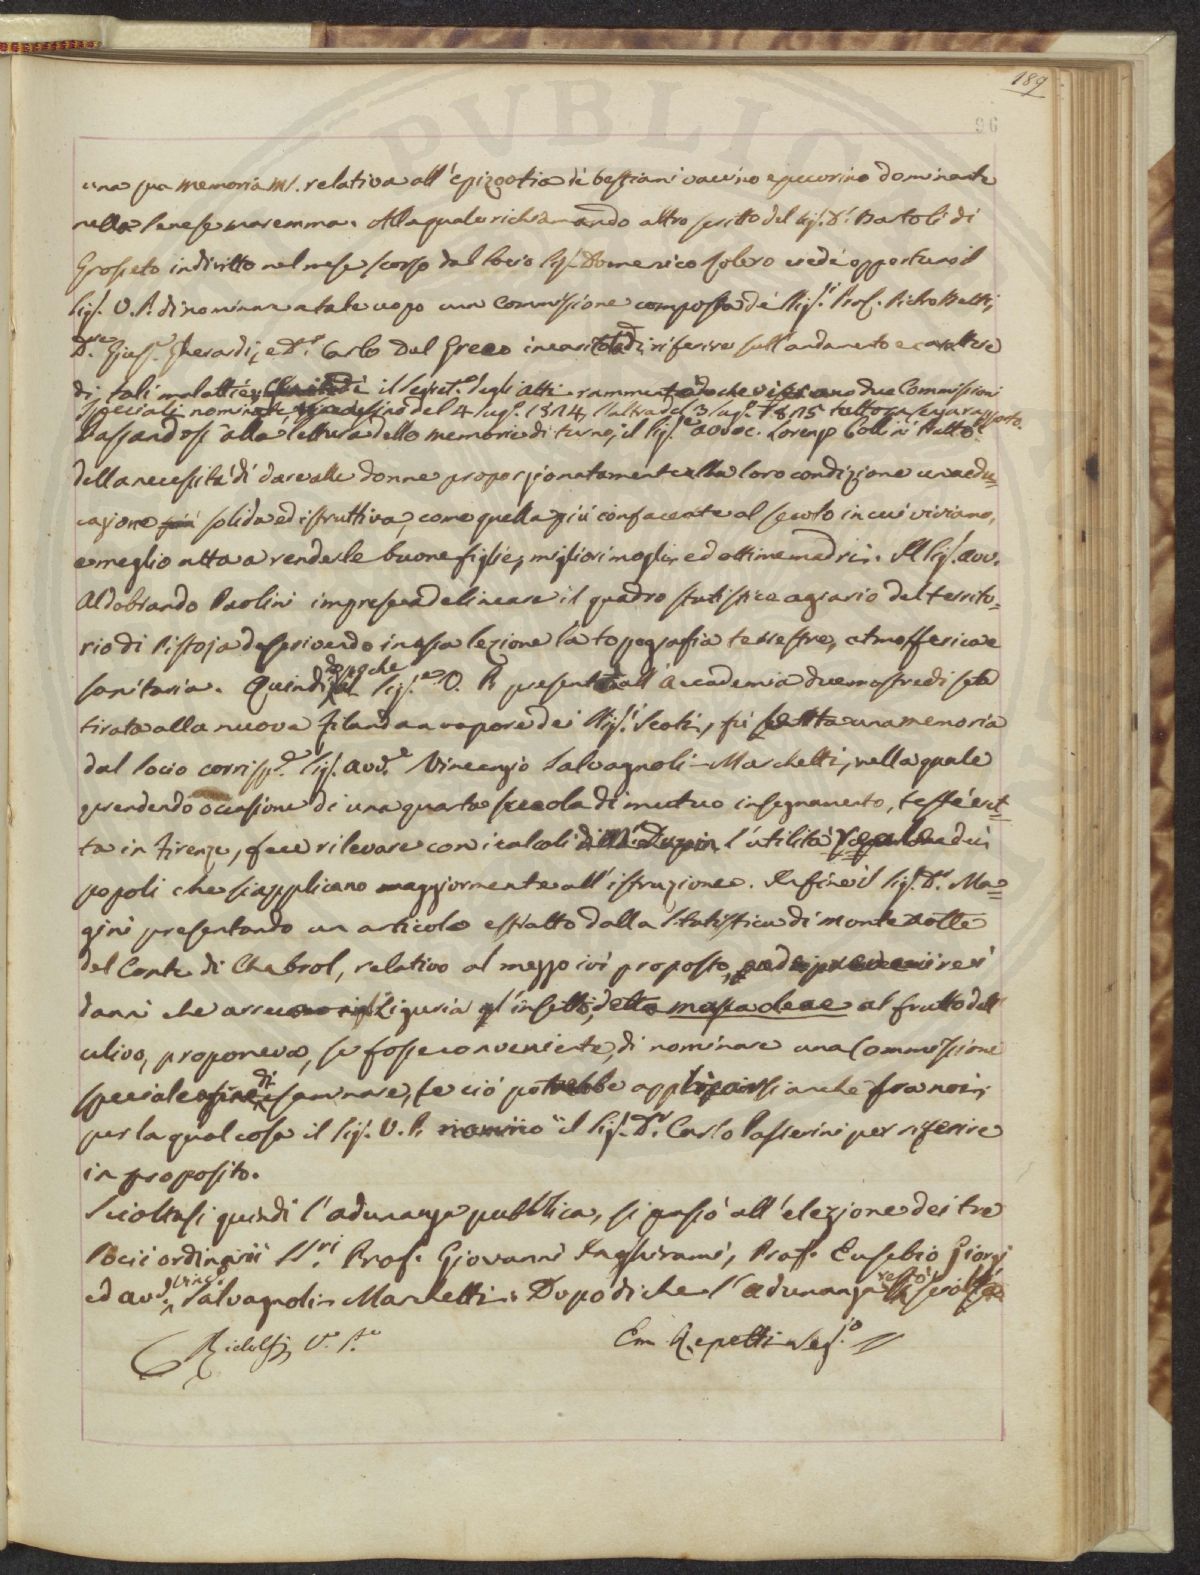 189
96
una sua memoria ms. relativa all'epizootia di bestiami vaccino e pecorino dominante
nella Senese maremma. Alla quale richiamando altro scritto del Sig. Dr. Bartoli di
Grosseto indiritto nel mese scorso dal socio Sig. Domenico Solero credè opportuno il
Sig. V. P. di nominare a tale uopo una Commissione composta dei Sigri. Prof. Pietro Betti,
Dre. Giusp. Gherardi, e Dr. Carlo Del Greco incaricata di riferire sull'andamento e carattere
di tali malattie, il Segreto. degli Atti rammentando che vi erano due Commissioni
speciali nominate del 4 lug. 1824, l'altra del 3 lug. 1825 tuttora senza rapporto.
Passandosi alla lettura delle memorie di turno, il Sige. avvoc. Lorenzo Collini trattò
della necessità di dare alle donne proporzionatamente alla loro condizione una edu=
cazione più solida ed istruttiva, come quella più confacente al secolo in cui viviamo,
e meglio atta a renderle buone figlie, migliori mogli, ed ottime madri. Il Sig. avv.
Aldobrando Paolini imprese a delineare il quadro statistico agrario del territo=
rio di Pistoja descrivendo in essa lezione la topografia terrestre, atmosferica e
sanitaria. Quindi dopoche il Sige. V. P. presentò all'Accademia due mostre di seta
tirata alla nuova filanda a vapore dei Sigri. Scoti, fù letta una memoria
dal socio corrispe. Sig. avve. Vincenzio Salvagnoli-Marchetti, nella quale
prendendo occasione di una quarta scuola di mutuo insegnamento, testè eret=
ta in Firenze, fece rilevare con i calcoli di Mr. Dupin l'utilità dei
popoli che si applicano maggiormente all'istruzione. Infine il Sig. Dr. Ma=
gini presentando un articolo estratto dalla Statistica di montenotte
del Conte di Chabrol, relativo al mezzo ivi proposto, prevenire i
danni che Liguria l'insetto, detto musca oleae al frutto dell'
ulivo, proponeva, se fosse conveniente, di nominare una Commissione
speciale a fine di esaminare, se ciò potrebbe applicarsi anche fra noi;
per la qual cosa il Sig. V. P. nominò il Sig. Dr. Carlo Passerini per riferire
in proposito.
Scioltasi quindi l'adunanza pubblica, si passò all'elezione dei tre
Socii ordinarii SSri. Prof. Giovanni Inghirami, Prof. Eusebio Giorgi
ed avv. Vinco. Salvagnoli-Marchetti. Dopo di che l'adunanza restò sciolta.
Ridolfi V. P.e Em. Repetti Seg.io